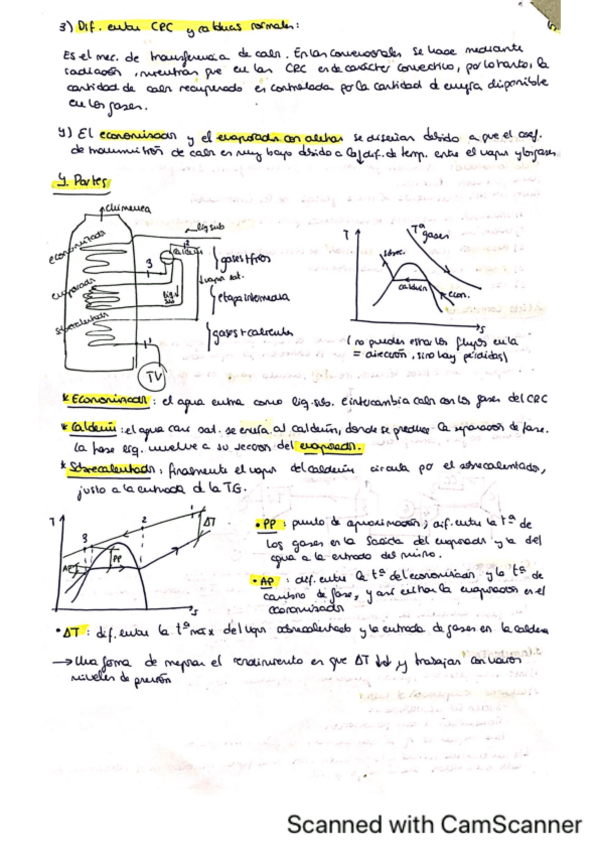 3) Dif. entre CRC y calderas normales:
Es el mec. de transferencia de calor. En las convencionales se hace mediante
radiación, mientras que en las CRC es de carácter convectivo, por lo tanto, la
cantidad de calor recuperado es controlada por la cantidad d energía disponible
en los gases.
4) El economizador y el evaporador con aletas se diseñan debido a que el coef.
de transmisión de calor es muy bajo debido a la dif. de temp. entre el vapor y los gases
4. Partes
chimenea
economizador
evaporador
sobrecalentador
liq sub
calderín
2
3
1
vapor sat.
liq. sub
gases + fríos
etapa intermedia
gases + calientes
TV
T
Tª gases
sobrec.
calderín
econ.
s
(no pueden estar los flujos en la
= dirección, sino hay pérdidas)
* Economizador: el agua entra como liq. sub. e intercambia calor con los gases del CRC
* Calderín: el agua casi sat. se envía al calderín, donde se produce la separación de fase.
La fase liq. vuelve a su sección del evaporador.
* Sobrecalentador: finalmente el vapor del calderín circula por el sobrecalentador,
justo a la entrada d la TG.
T
3
2
1
ΔT
PP
AP
s
• PP: punto de aproximación; dif. entre la tª de
los gases en la salida del evaporador y la del
agua a la entrada del mismo.
• AP: dif. entre la tª del economizador y la tª de
cambio de fase, y así evitar la evaporación en el
economizador
• ΔT: dif. entre la tª max del vapor sobrecalentado y la entrada de gases en la caldera
→ Una forma de mejorar el rendimiento es que ΔT ↓ y trabajar con varios
niveles de presión
Scanned with CamScanner